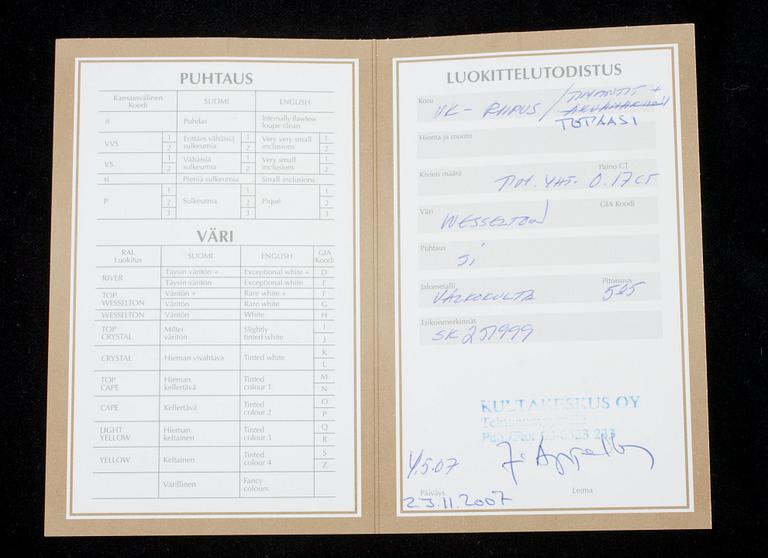 PUHTAUS
Kansainvälinen Koodi SUOMI ENGLISH
if Puhdas Internally flawless loupe clean
VVS 1 2 Erittäin vähäisiä sulkeumia 1 2 Very very small inclusions 1 2
VS 1 2 Vähäisiä sulkeumia 1 2 Very small inclusions 1 2
si Pieniä sulkeumia Small inclusions
P 1 2 3 Sulkeumia 1 2 3 Piqué 1 2 3
VÄRI
RAL Luokitus SUOMI ENGLISH GIA Koodi
RIVER Täysin väritön + Exceptional white + D
Täysin väritön Exceptional white E
TOP WESSELTON Väritön + Rare white + F
Väritön Rare white G
WESSELTON Väritön White H
TOP CRYSTAL Miltei väritön Slightly tinted white I J
CRYSTAL Hieman vivahtava Tinted white K L
TOP CAPE Hieman kellertävä Tinted colour 1 M N
CAPE Kellertävä Tinted colour 2 O P
LIGHT YELLOW Hieman keltainen Tinted colour 3 Q R
YELLOW Keltainen Tinted colour 4 S Z
Värillinen Fancy colours
LUOKITTELUTODISTUS
Koru VK- RIIPUS / TIMANTIT +
TOPAASI
Hionta ja muoto
Kivien määrä Paino CT
TIM. YHT. 0.17 CT
Väri GIA Koodi
WESSELTON
Puhtaus
Si
Jalometalli Pitoisuus
VALKOKULTA 585
Erikoismerkinnät
SK 251999
KULTAKESKUS OY
4.5.07
Päiväys Leima
23.11.2007